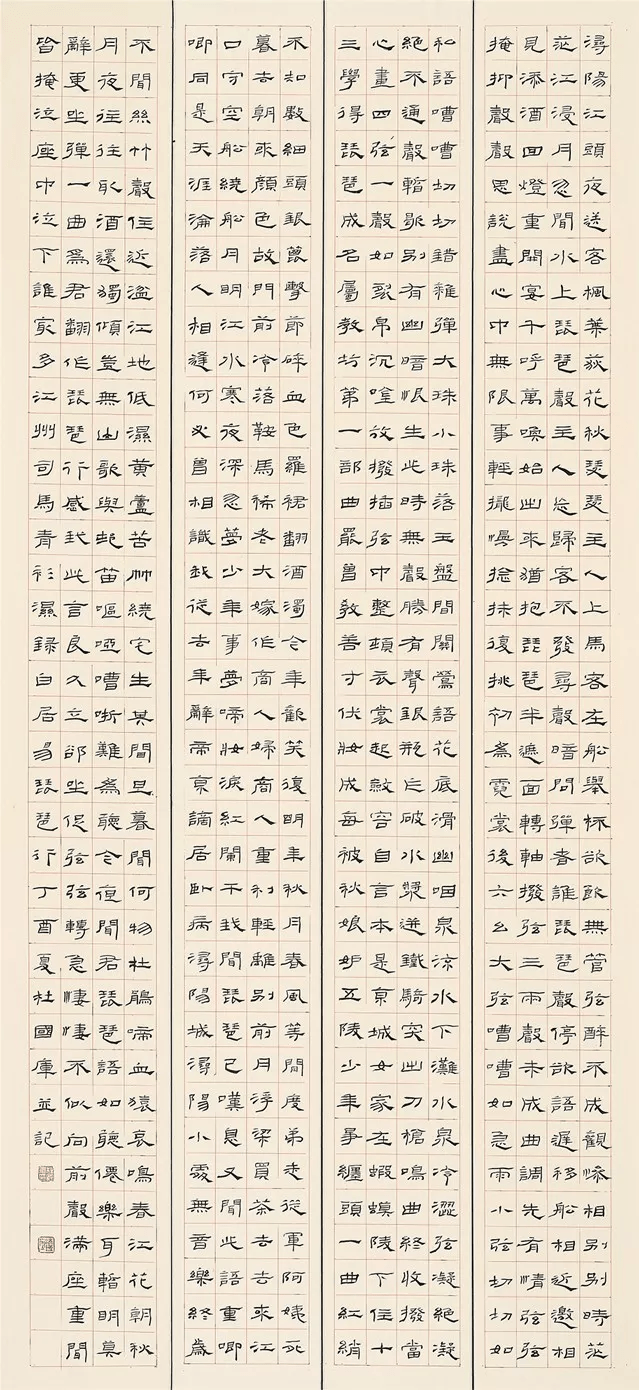 潯陽江頭夜送客楓葉荻花秋瑟瑟主人上馬客在船舉杯欲飲無管弦醉不成歡慘相別別時茫
茫江浸月忽聞水上琵琶聲主人忘歸客不發尋聲暗問彈者誰琵琶聲停欲語遲移船相近邀相
見添酒回燈重開宴千呼萬喚始出來猶抱琵琶半遮面轉軸撥弦三兩聲未成曲調先有情弦弦
掩抑聲聲思說盡心中無限事輕攏慢撚抹復挑初為霓裳後六幺大弦嘈嘈如急雨小弦切切如
私語嘈嘈切切錯雜彈大珠小珠落玉盤間關鶯語花底滑幽咽泉流水下灘水泉冷澀弦凝絕凝
絕不通聲暫歇別有幽暗恨生此時無聲勝有聲銀瓶乍破水漿迸鐵騎突出刀槍鳴曲終收撥當
心畫四弦一聲如裂帛沉吟放撥插弦中整頓衣裳起斂容自言本是京城女家在蝦蟆陵下住十
三學得琵琶成名屬教坊第一部曲罷曾教善才伏妝成每被秋娘妒五陵少年爭纏頭一曲紅綃
不知數鈿頭銀篦擊節碎血色羅裙翻酒污今年歡笑復明年秋月春風等閒度弟走從軍阿姨死
暮去朝來顏色故門前冷落鞍馬稀老大嫁作商人婦商人重利輕離別前月浮梁買茶去去來江
口守空船繞船月明江水寒夜深忽夢少年事夢啼妝淚紅闌干我聞琵琶已嘆息又聞此語重唧
唧同是天涯淪落人相逢何必曾相識我從去年辭帝京謫居臥病潯陽城潯陽小處無音樂終歲
不聞絲竹聲住近湓江地低濕黃蘆苦竹繞宅生其間旦暮聞何物杜鵑啼血猿哀鳴春江花朝秋
月夜往往取酒還獨傾豈無山歌與村笛嘔啞嘈哳難為聽今夜聞君琵琶語如聽僊樂耳暫明莫
辭更坐彈一曲為君翻作琵琶行感我此言良久立卻坐促弦弦轉急淒淒不似向前聲滿座重聞
皆掩泣座中泣下誰最多江州司馬青衫濕錄白居易琵琶行丁酉夏杜國庫並記